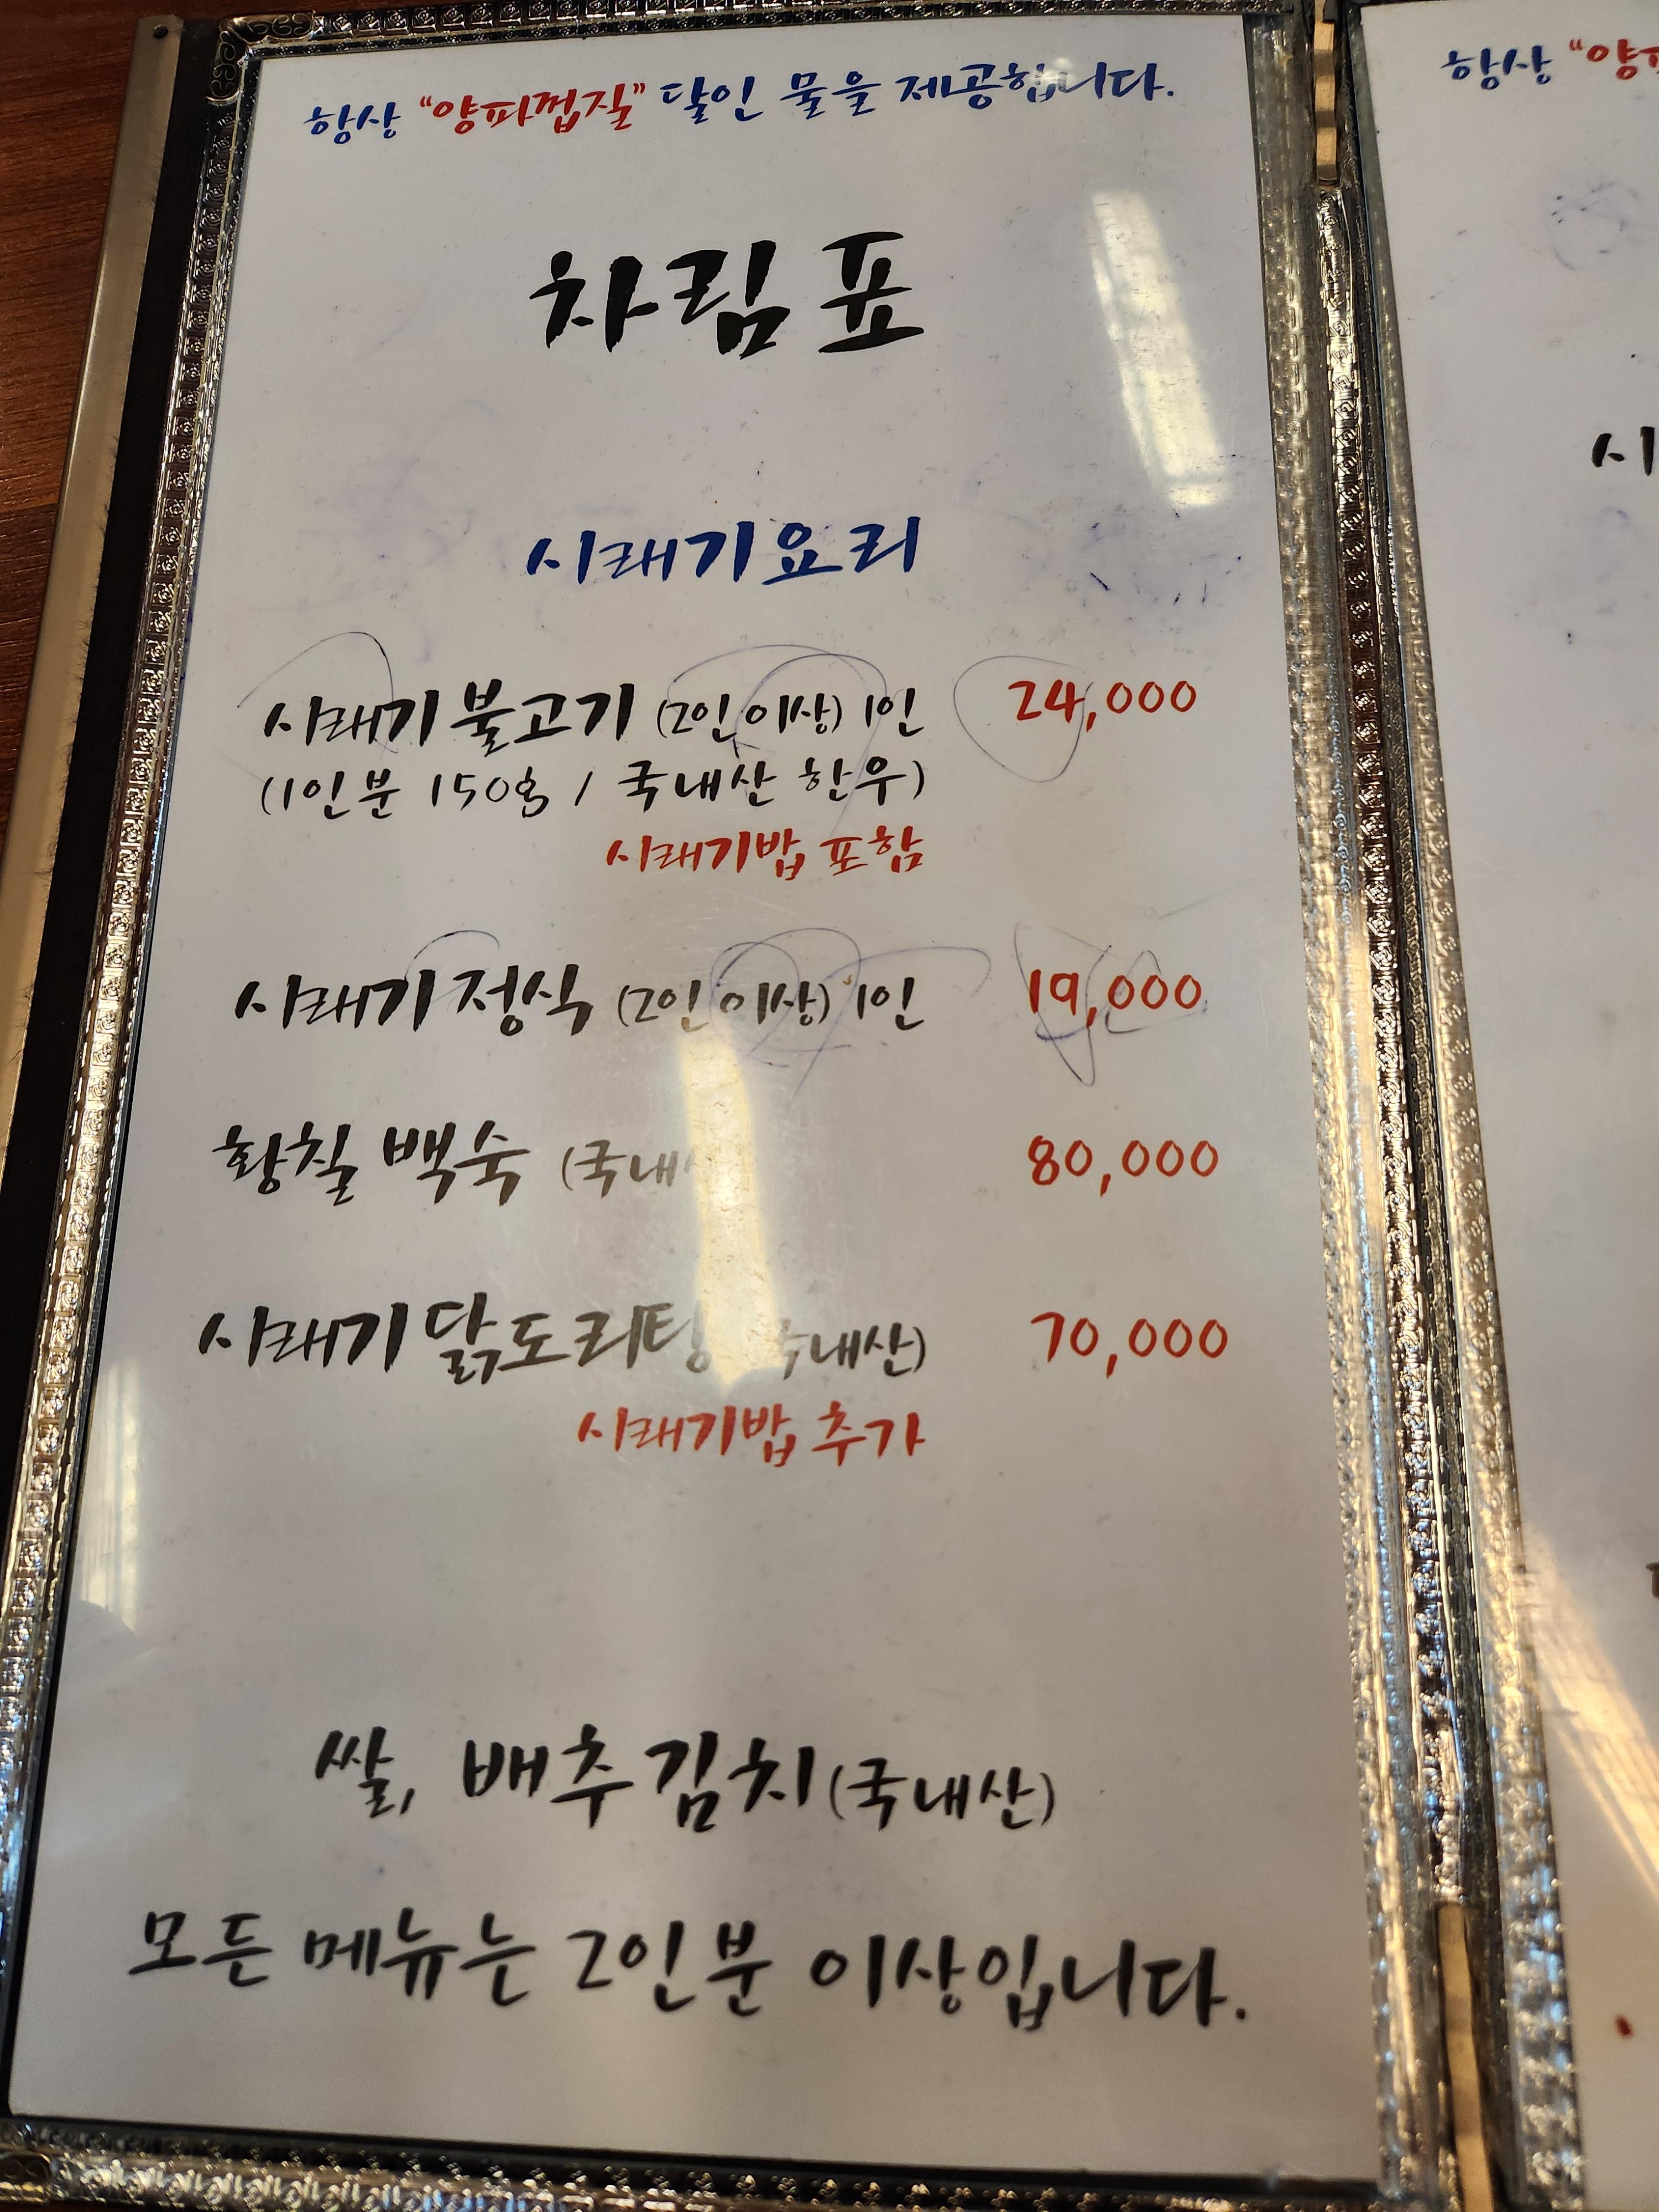 항상 "양파껍질" 달인 물을 제공합니다.
차림표
시래기요리
시래기 불고기 (2인 이상) 1인 24,000
(1인분 150g / 국내산 한우)
시래기밥 포함
시래기 정식 (2인 이상) 1인 19,000
황칠 백숙 (국내 80,000
시래기 닭도리탕 국내산) 70,000
시래기밥 추가
쌀, 배추김치(국내산)
모든 메뉴는 2인분 이상입니다.
항상 "양파
시